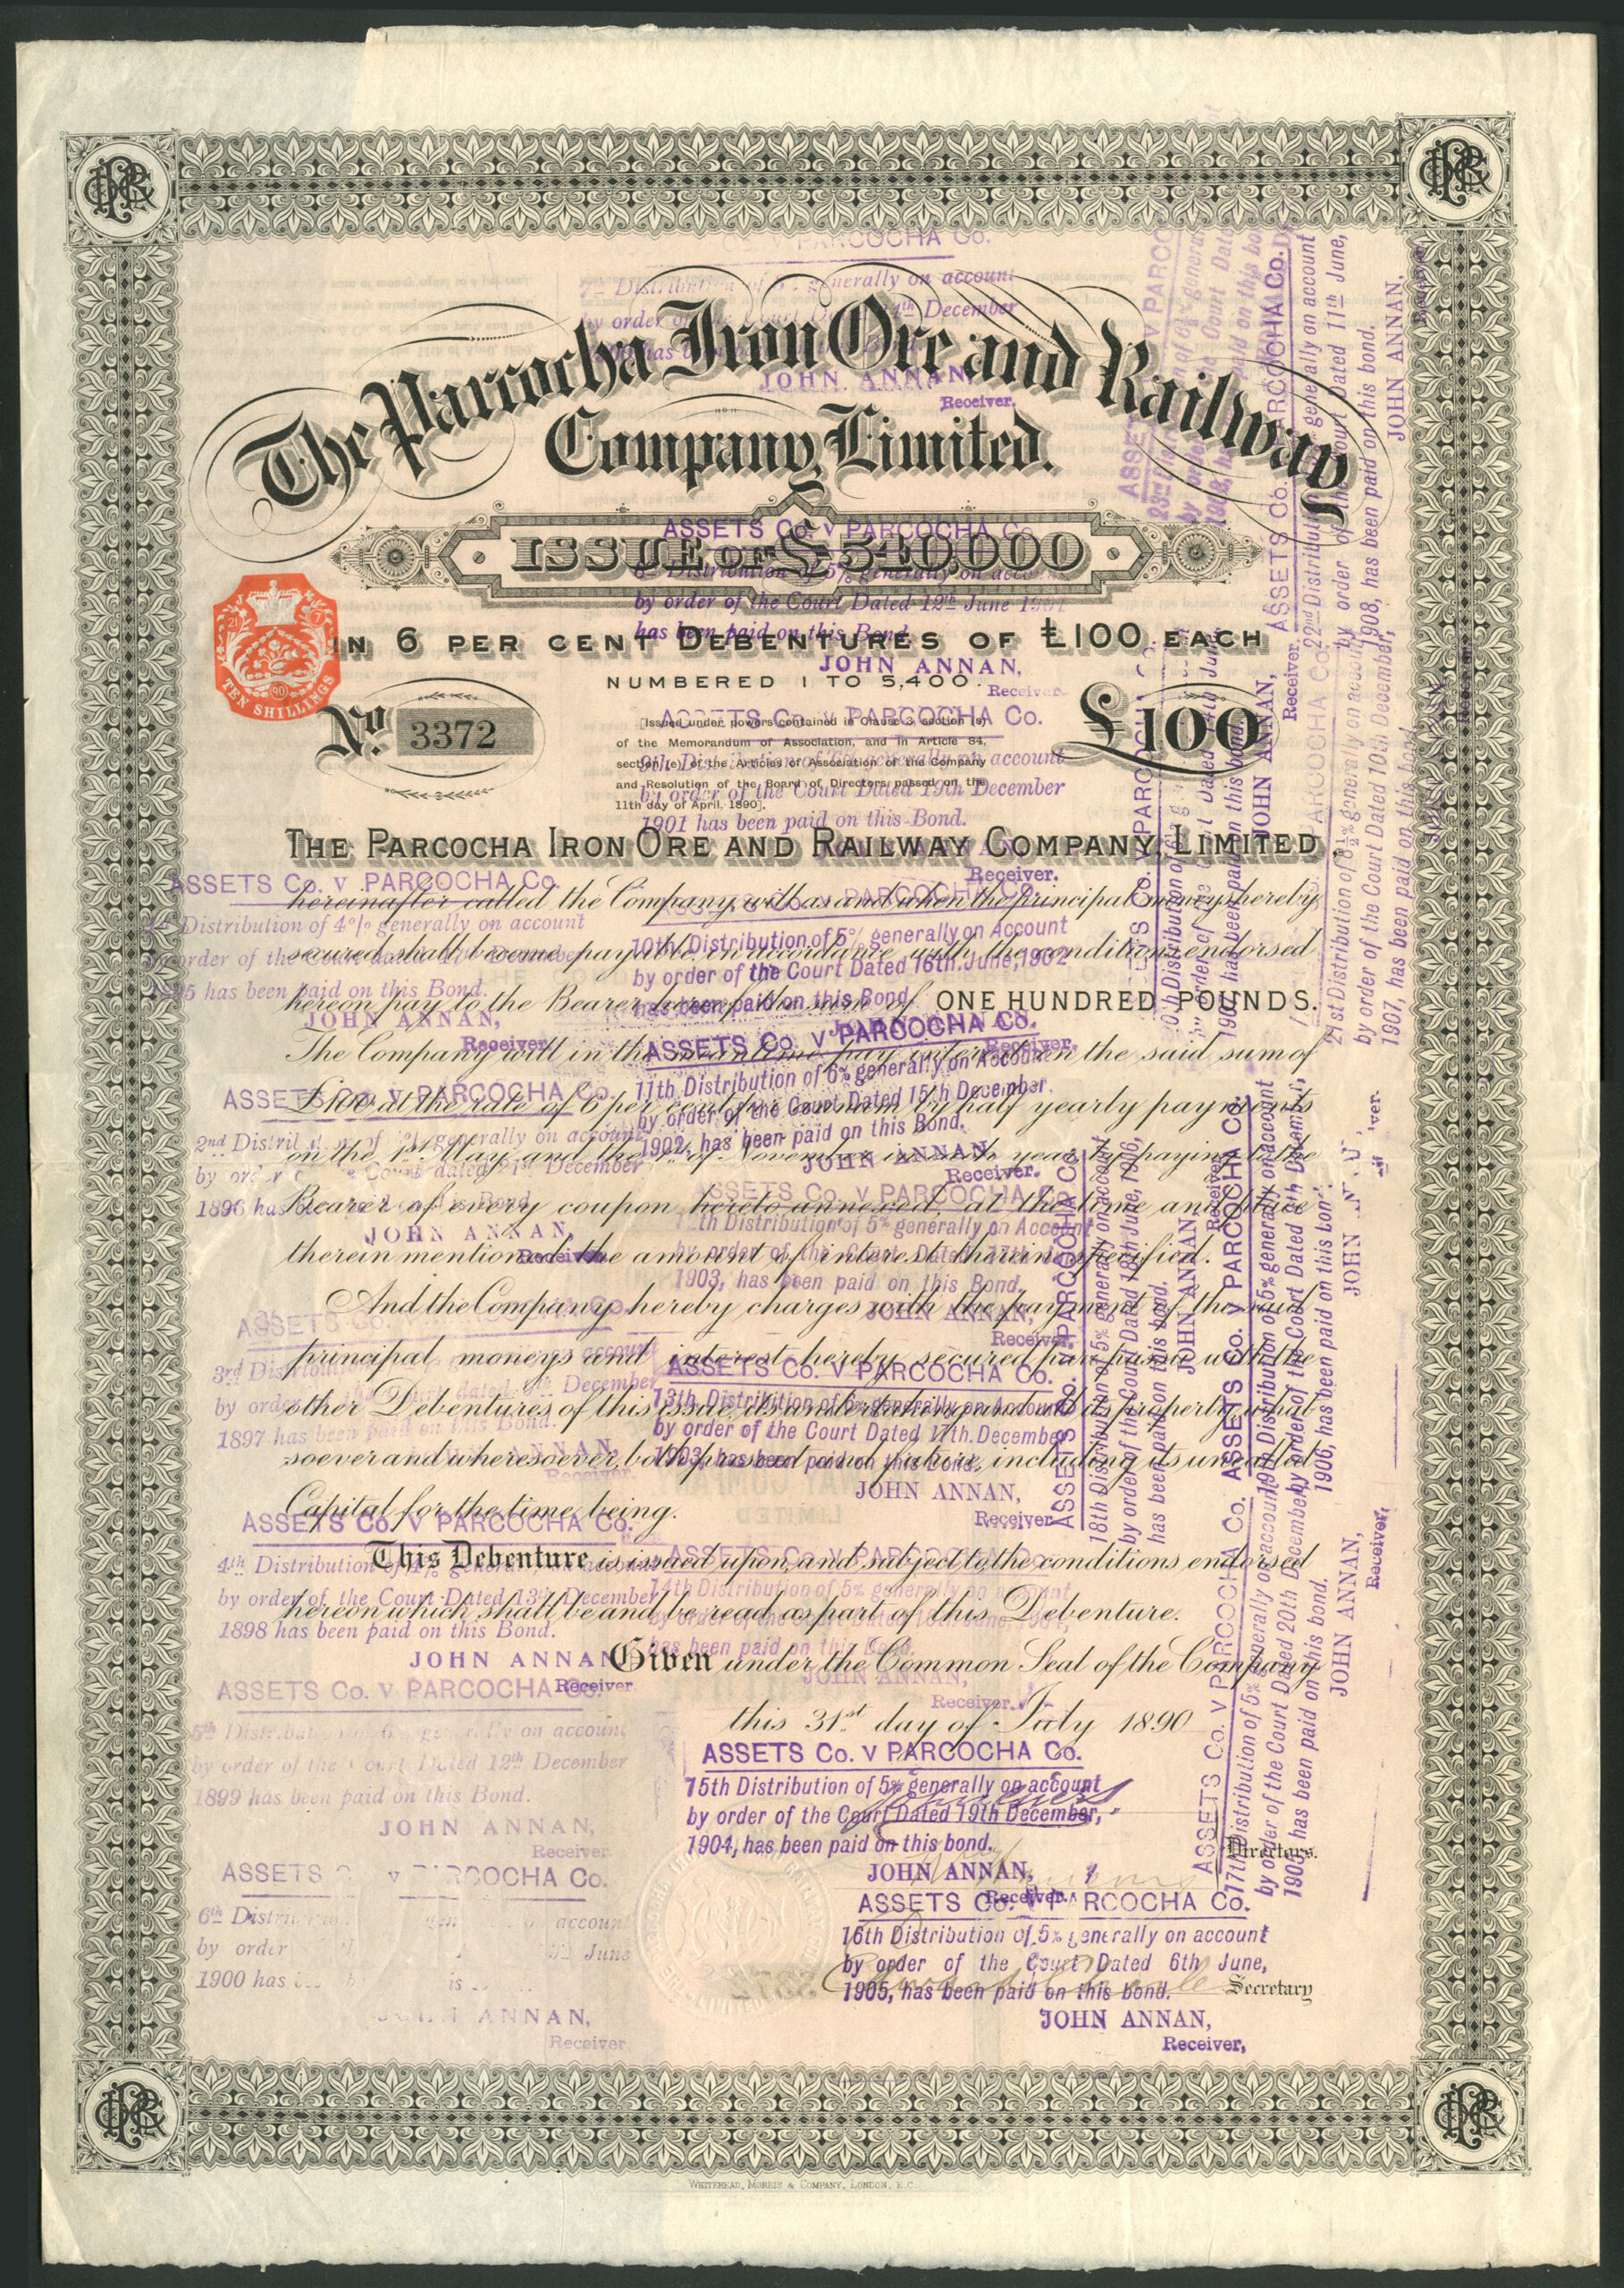 The Parcocha Iron Ore and Railway
Company, Limited.
ISSUE OF £540,000
IN 6 PER CENT DEBENTURES OF £100 EACH
NUMBERED 1 TO 5,400.
TEN SHILLINGS
No. 3372
£100
[Issued under powers contained in Clause 3, section (s)
of the Memorandum of Association, and in Article 84,
section (e) of the Articles of Association of the Company
and Resolution of the Board of Directors passed on the
11th day of April, 1890].
THE PARCOCHA IRON ORE AND RAILWAY COMPANY, LIMITED
hereinafter called the Company will as and when the principal moneys hereby
secured shall become payable, in accordance with the conditions endorsed
hereon pay to the Bearer hereof the sum of ONE HUNDRED POUNDS.
The Company will in the meantime pay interest on the said sum of
£100 at the rate of 6 per cent per annum by half yearly payments
on the 1st May and the 1st of November in each year by paying to the
Bearer of every coupon hereto annexed, at the time and place
therein mentioned the amount of interest therein specified.
And the Company hereby charges with the payment of the said
principal moneys and interest hereby secured pari passu with the
other Debentures of this issue, its undertaking and all its property what-
soever and wheresoever, both present and future, including its uncalled
Capital for the time being.
This Debenture is issued upon, and subject to the conditions endorsed
hereon which shall be and be read as part of this Debenture.
Given under the Common Seal of the Company
this 31st day of July 1890
Directors.
Secretary
WHITEHEAD, MORRIS & COMPANY, LONDON, E.C.
PARCOCHA Co.
7th Distribution of generally on account
by order of the Court 14th December
JOHN ANNAN,
Receiver.
ASSETS Co. V PARCOCHA Co.
8th Distribution of 5% generally on account
by order of the Court Dated 12th June 1901
has been paid on this Bond.
JOHN ANNAN,
Receiver.
ASSETS Co. V PARCOCHA Co.
9th Distribution generally on account
by order of the Court Dated 19th December
1901 has been paid on this Bond.
Receiver.
ASSETS Co. V PARCOCHA Co.
Distribution of 4% generally on account
order of the Court
has been paid on this Bond.
JOHN ANNAN,
Receiver.
10th Distribution of 5% generally on Account
by order of the Court Dated 16th June, 1902
has been paid on this Bond.
Receiver.
ASSETS Co. V PARCOCHA Co.
11th Distribution of 6% generally on Account
by order of the Court Dated 15th December,
1902, has been paid on this Bond.
JOHN ANNAN,
Receiver.
ASSETS Co. V PARCOCHA Co.
2nd generally on account
by order Court dated 21st December
1896 has
JOHN ANNAN,
Receiver.
ASSETS Co. V PARCOCHA Co.
12th Distribution of 5% generally on Account
1903, has been paid on this Bond.
JOHN ANNAN,
Receiver.
ASSETS Co.
3rd
by order dated 6th December
1897 has been paid on this Bond.
ANNAN,
Receiver.
ASSETS Co. V PARCOCHA Co.
13th Distribution of generally on Account
by order of the Court Dated 17th. December
1903, has been paid on this Bond.
JOHN ANNAN,
Receiver
ASSETS Co. V PARCOCHA Co.
4th Distribution
by order of the Court Dated 13th December
1898 has been paid on this Bond.
JOHN ANNAN
Receiver
14th Distribution of 5% generally on account,
has been paid on this Bond.
JOHN ANNAN,
Receiver.
ASSETS Co. V PARCOCHA Co.
5th on account
by order of the Court Dated 12th December
1899 has been paid on this Bond.
JOHN ANNAN,
Receiver.
ASSETS Co. V PARCOCHA Co.
15th Distribution of 5% generally on account
by order of the Court Dated 19th December,
1904, has been paid on this bond.
JOHN ANNAN,
Receiver.
ASSETS V PARCOCHA Co.
6th account
by order June
1900 has
ANNAN,
Receiver
ASSETS Co. V PARCOCHA Co.
16th Distribution of 5% generally on account
by order of the Court Dated 6th June,
1905, has been paid on this bond.
JOHN ANNAN,
Receiver,
ASSETS Co. V PARCOCHA Co.
17th Distribution of 5% generally on account
by order of the Court Dated 20th December,
1905, has been paid on this bond.
JOHN ANNAN,
Receiver,
ASSETS Co. V PARCOCHA Co.
18th Distribution of 5% generally on account
by order of the Court Dated 18th June, 1906,
has been paid on this bond.
JOHN ANNAN
Receiver
ASSETS Co. V PARCOCHA Co.
19th Distribution of 5% generally on account
by order of the Court Dated
1906, has been paid on this bond.
JOHN
PARCOCHA Co.
20th Distribution of
JOHN ANNAN,
Receiver.
PARCOCHA Co.
21st Distribution of generally on account
by order of the Court Dated 10th December,
1907, has been paid on this bond
ASSETS Co. PARCOCHA Co.
22nd Distribution generally on account
by order of the Court Dated 11th June,
1908, has been paid on this bond.
JOHN ANNAN,
ASSETS V PARCO
23rd
paid on this bo